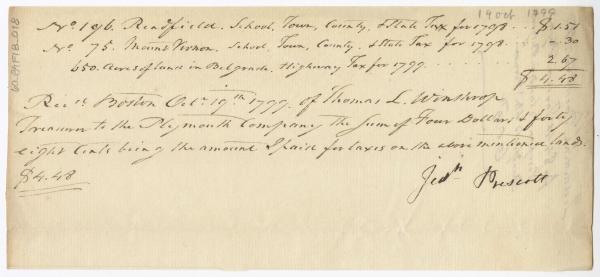 19 Oct 1799
No. 196. Readfield. School, Town, County, & State Tax for 1798 . . $ 1.51
No. 75. Mount Vernon. School, Town, County, & State Tax for 1798. — .30
650 Acres of land in Belgrade. Highway Tax for 1799 . . . . . 2.67
$ 4.48
Recd. Boston Octr. 19th 1799. of Thomas L. Winthrop
Treasurer to the Plymouth Company the Sum of Four Dollars & forty
eight Cents being the amount I paid for taxes on the above mentioned lands.
$ 4.48
Jedh Prescott